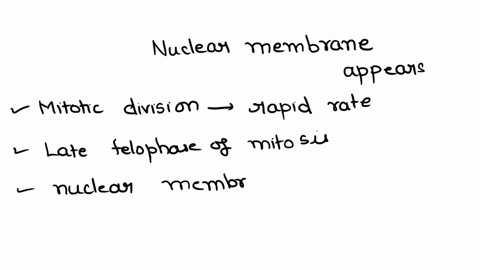 Nuclear membrane
appears
✓ Mitotic division → rapid rate
✓ Late telophase of mitosis
✓ nuclear membr